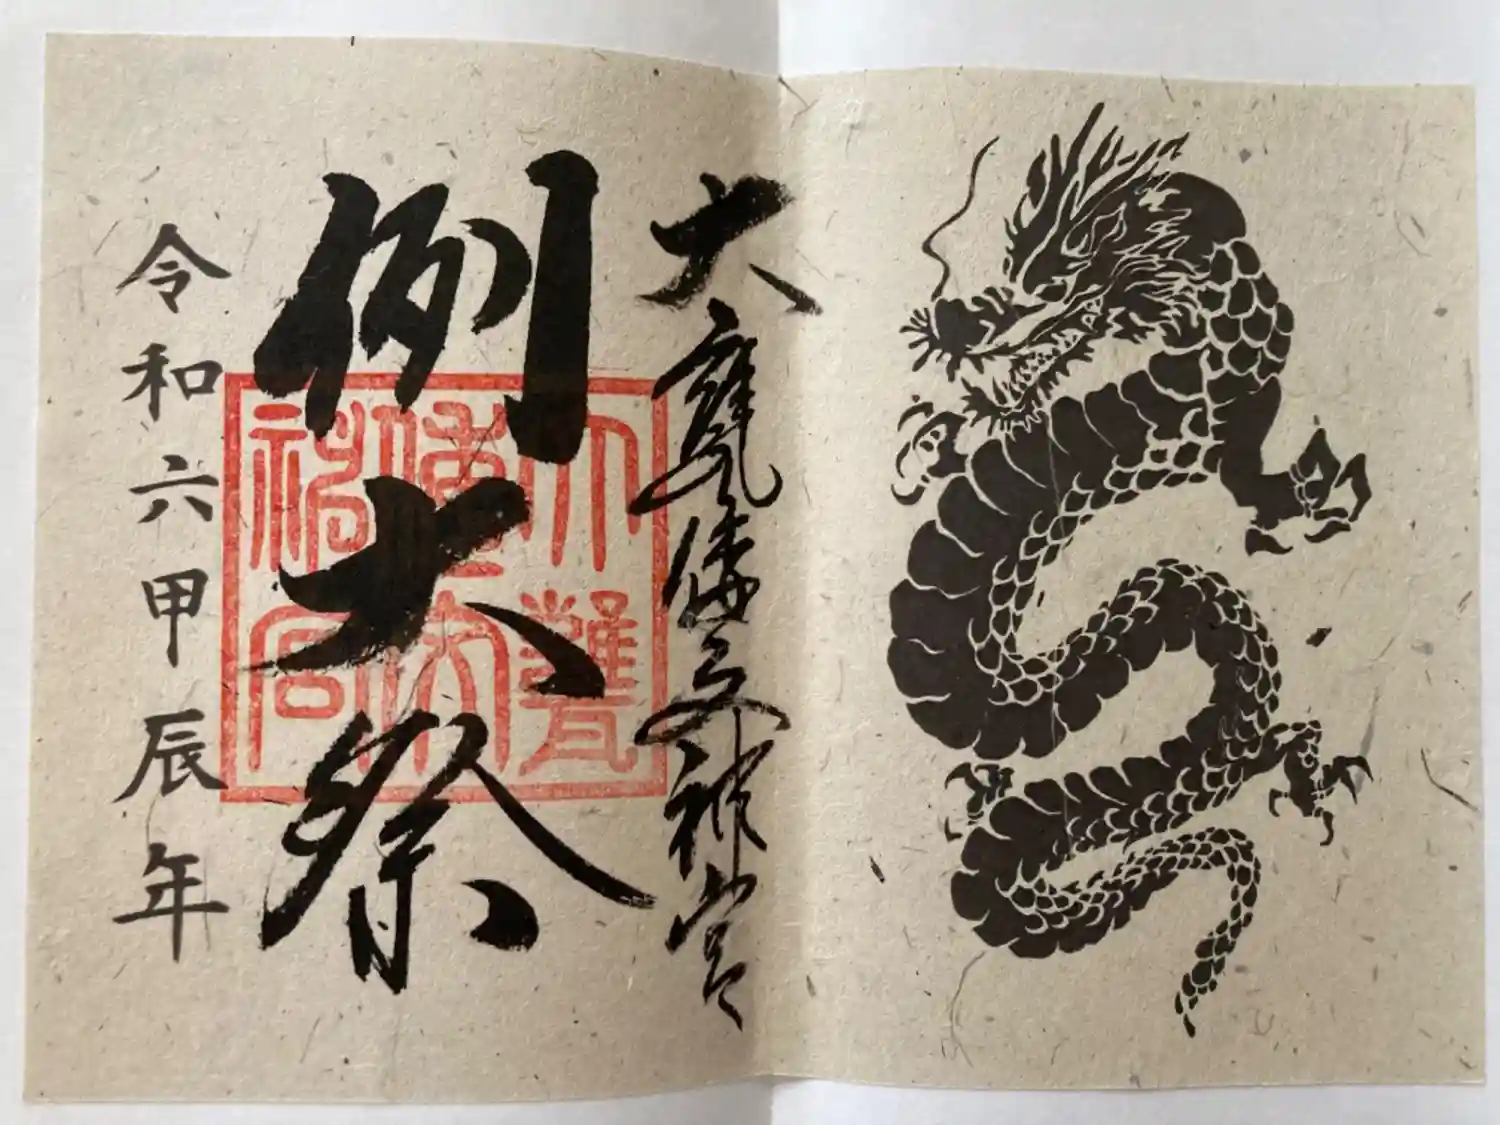 大甕倭文神宮
例大祭
大甕
倭文
神宮
令和六甲辰年